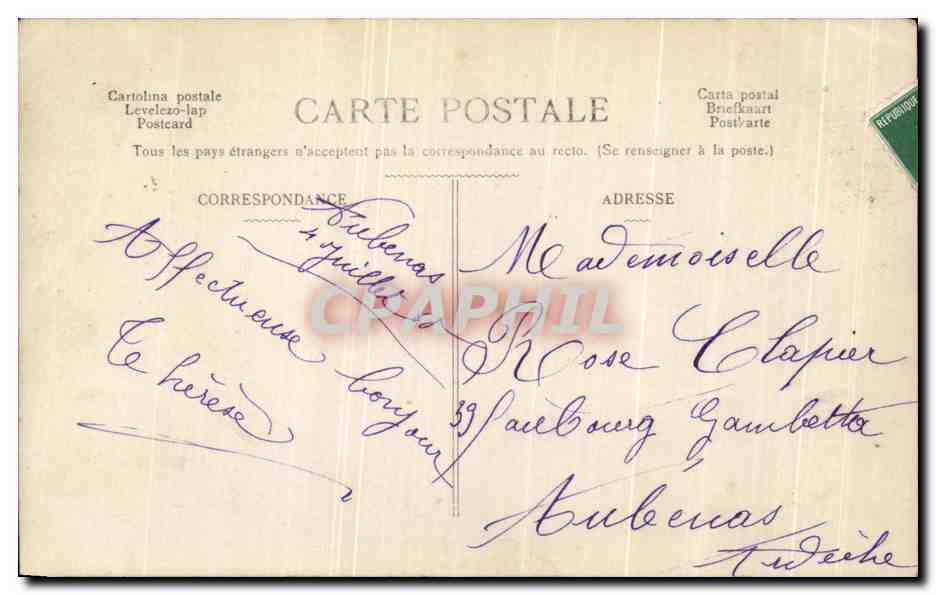 Cartolina postale
Levelezo-lap
Postcard
CARTE POSTALE
Carta postal
Briefkaart
Postkarte
Tous les pays étrangers n'acceptent pas la correspondance au recto. (Se renseigner à la poste.)
CORRESPONDANCE
ADRESSE
RÉPUBLIQUE
Aubenas
4 Juillet
Affectueuse bonjour
Thérèse
Mademoiselle
Rose Clapier
39 Faubourg Gambetta
Aubenas
Ardèche
CPAPHIL